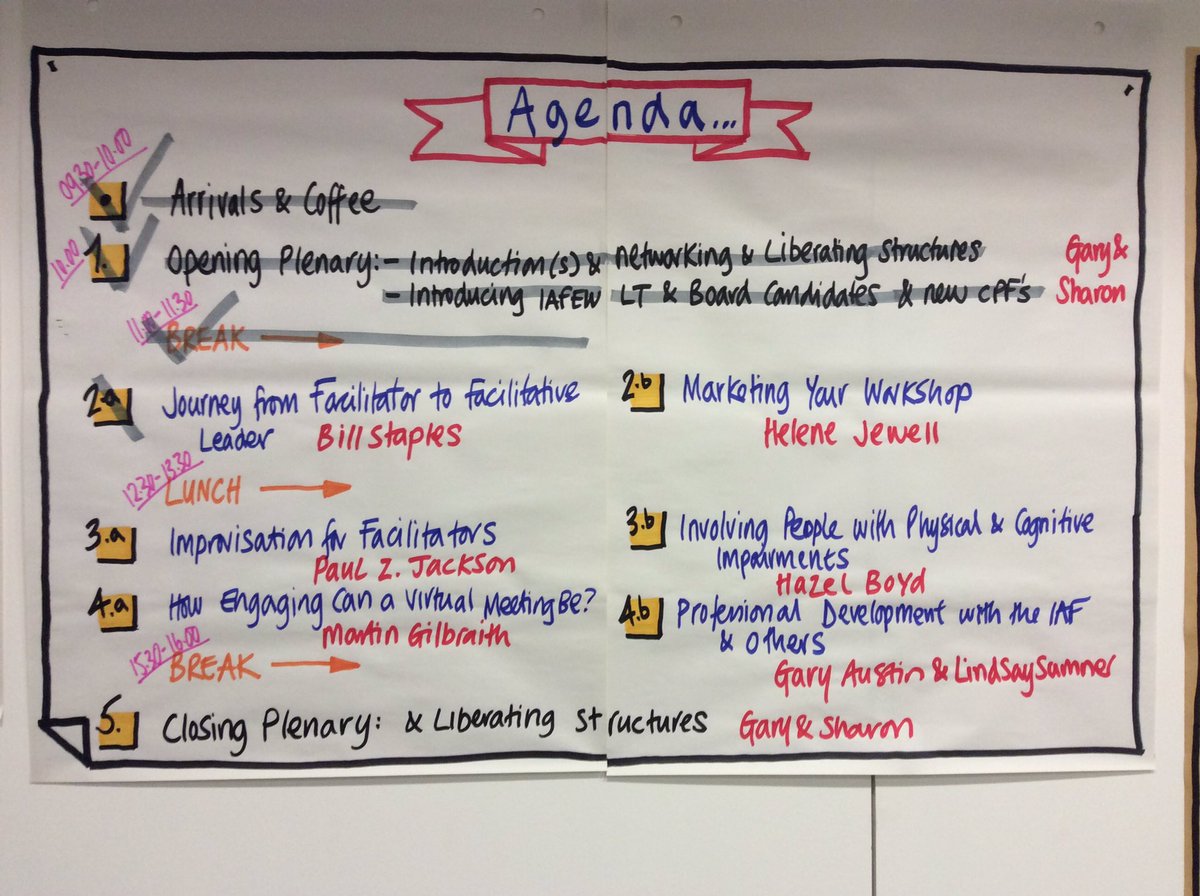 Agenda...
09.30-10.00
Arrivals & Coffee
10.00
1. Opening Plenary: - Introduction(s) & networking & Liberating Structures Gary &
- Introducing IAFEW LT & Board Candidates & new CPF's Sharon
11.10-11.30
BREAK
2.a Journey from Facilitator to Facilitative
Leader Bill Staples
2.b Marketing Your Workshop
Helene Jewell
12.30-13.30
LUNCH
3.a Improvisation for Facilitators
Paul Z. Jackson
3.b Involving People with Physical & Cognitive
Impairments
Hazel Boyd
4.a How Engaging Can a Virtual Meeting Be?
Martin Gilbraith
4.b Professional Development with the IAF
& Others
Gary Austin & Lindsay Sumner
15.30-16.00
BREAK
5. Closing Plenary: & Liberating Structures Gary & Sharon